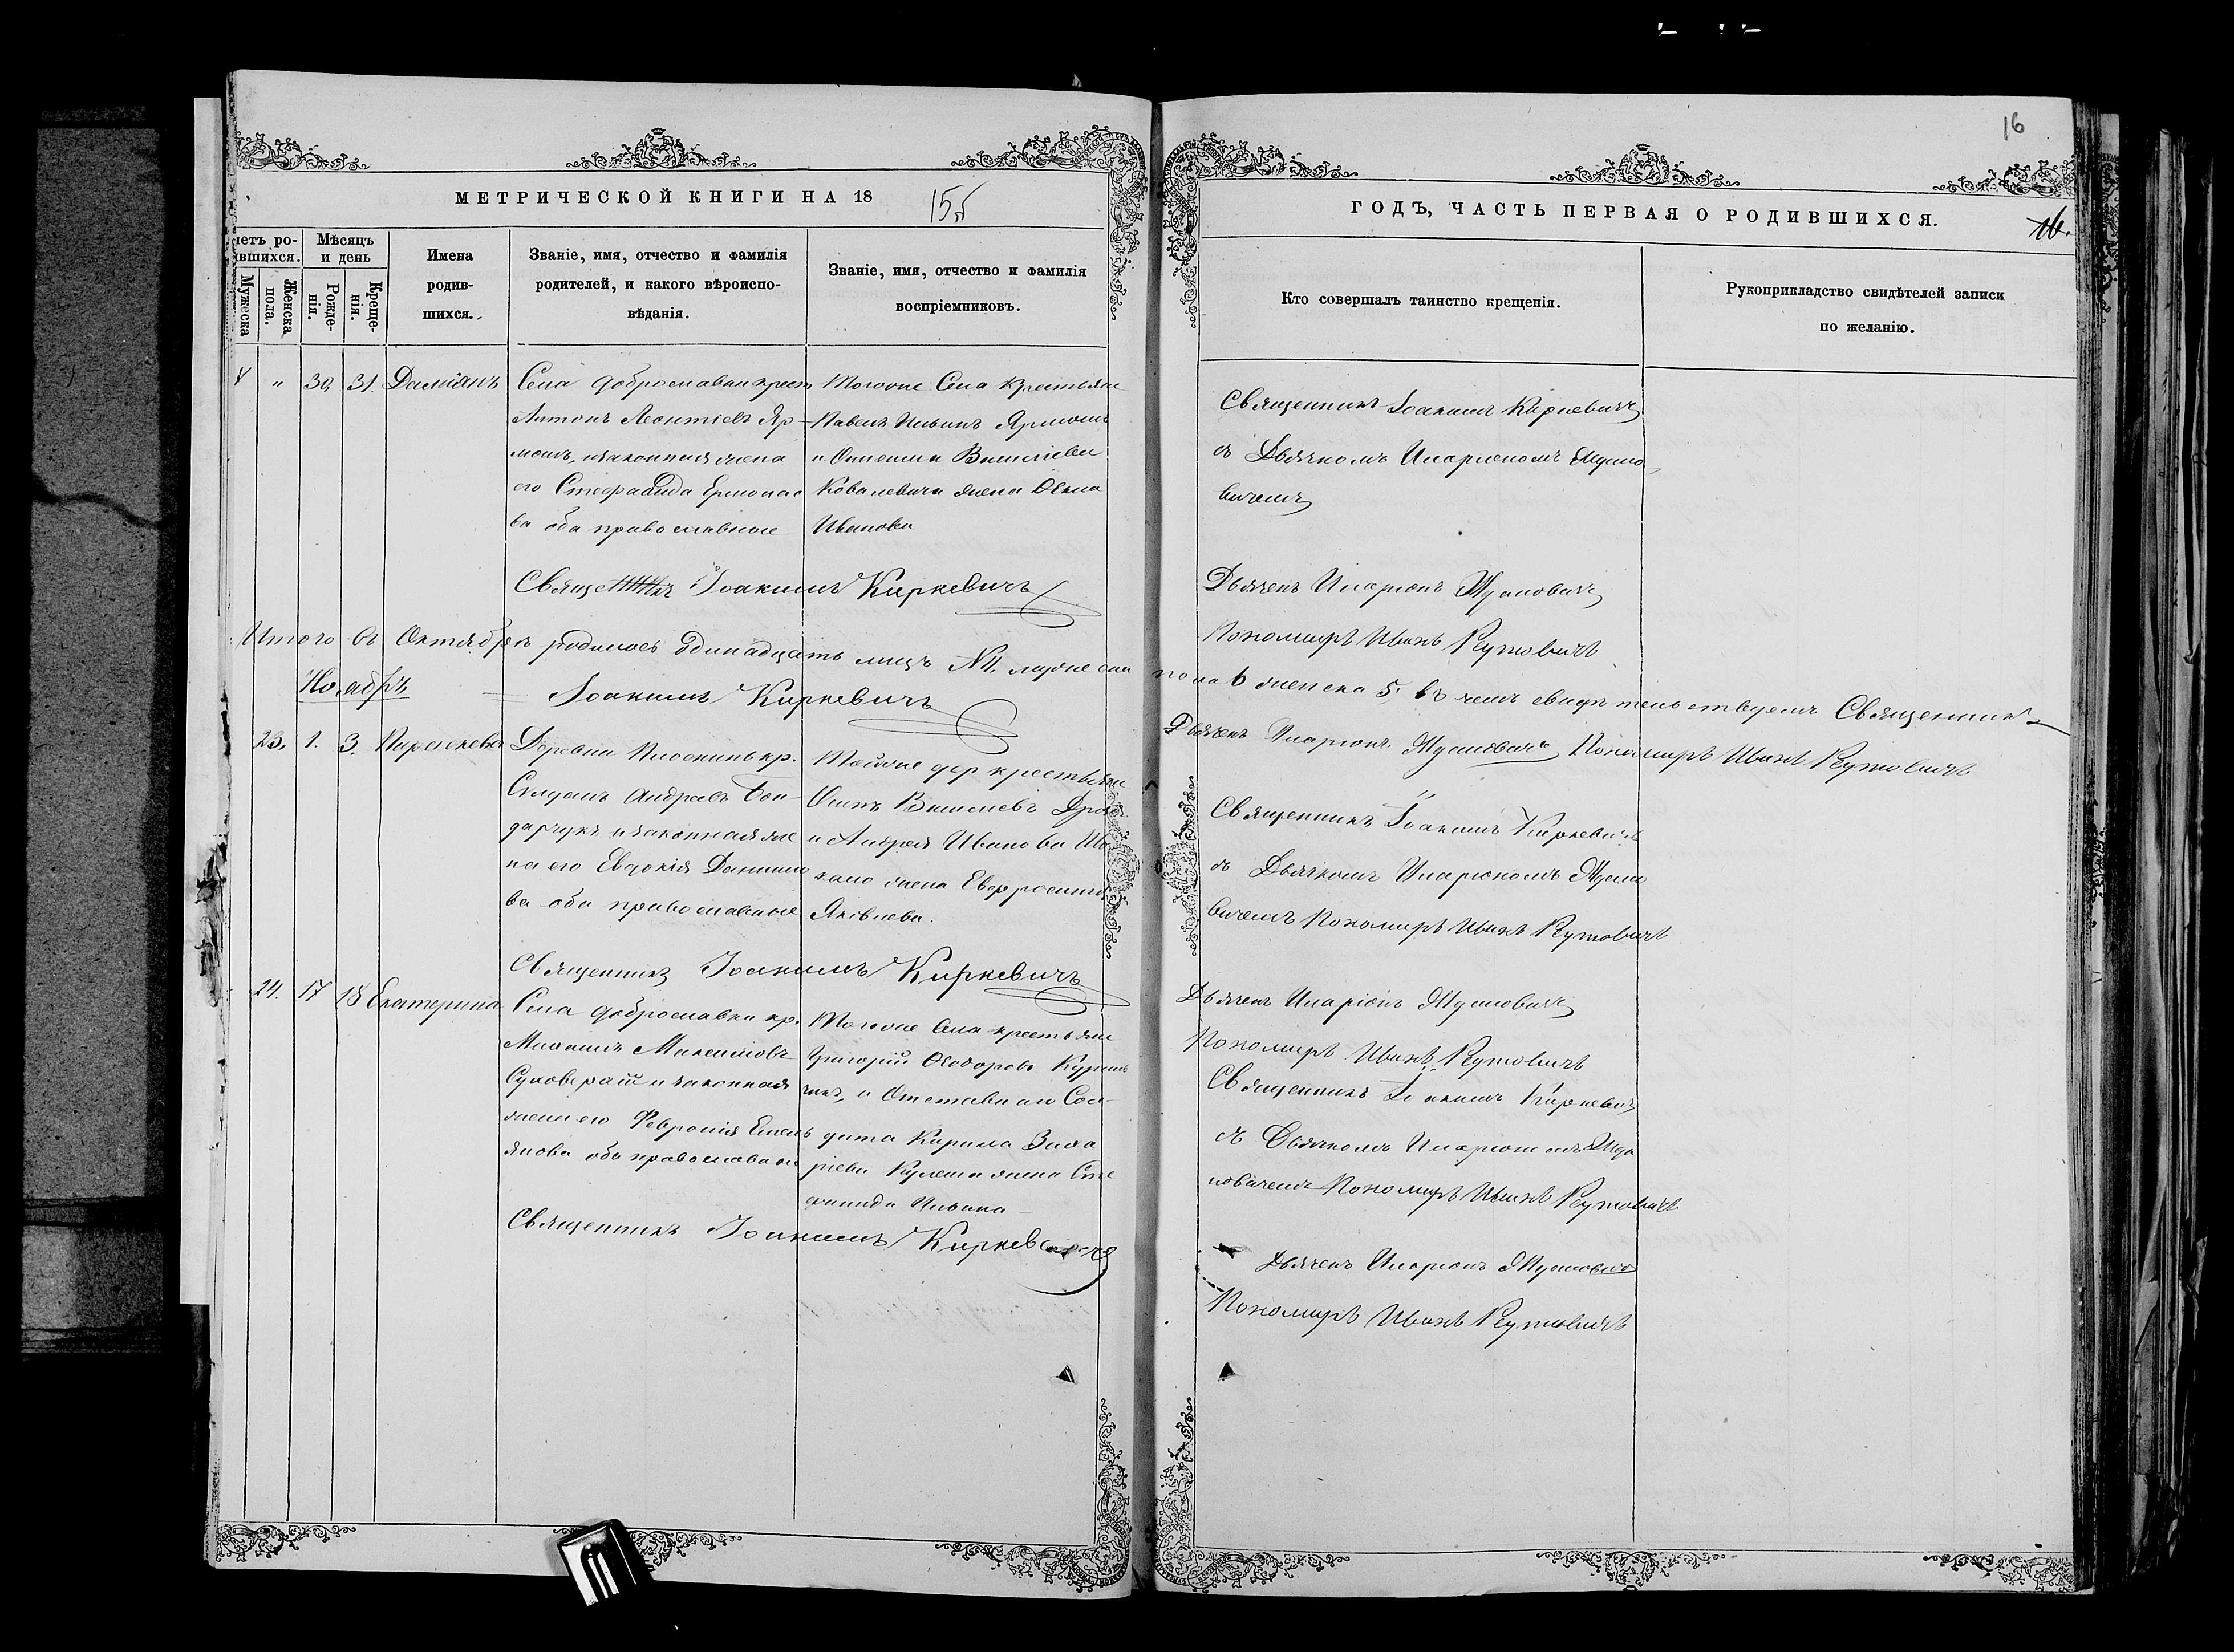 16
МЕТРИЧЕСКОЙ КНИГИ НА 18
15
ГОДЪ, ЧАСТЬ ПЕРВАЯ О РОДИВШИХСЯ.
16.
четъ ро-
вшихся.
Мужеска
Женска
пола.
Мѣсяцъ
и день
Рожде-
нія.
Креще-
нія.
Имена
родив-
шихся.
Званіе, имя, отчество и фамилія
родителей, и какого вѣроиспо-
вѣданія.
Званіе, имя, отчество и фамилія
воспріемниковъ.
Кто совершалъ таинство крещенія.
Рукоприкладство свидѣтелей записи
по желанію.
" 30 31. Даміянъ
Села Доброславки крест
Антонъ Леонтіевъ Яр-
молъ, и законная жена
его Стефанида
ва оба православные
Тогоже Села крестьяне
Павелъ Ильинъ
и
Ковалевича жена
Иванова
Священникъ Іоакимъ Киркевичъ
съ Дьячкомъ Иларіономъ
вичемъ
Священникъ Іоакимъ Киркевичъ
Дьячекъ Иларіонъ
Пономарь Иванъ Рутовичъ
Итого въ Октябрѣ родилось одинадцать лицъ №11. мужеска
пола 6 женска 5, въ чемъ свидѣтельствуемъ Священникъ
Іоакимъ Киркевичъ
Дьячекъ Иларіонъ Пономарь Иванъ Рутовичъ
Ноябрь
23. 1. 3. Параскева
Деревни кр.
Андреевъ Бон-
дарчукъ и законная же
на его Евдокія Данило
ва оба православные
Тойже дер крестьяне
и Андрея Иванова
жена Евфросинія
Яковлева.
Священникъ Іоакимъ Киркевичъ
съ Дьячкомъ Иларіономъ
вичемъ Пономарь Иванъ Рутовичъ
Священникъ Іоакимъ Киркевичъ
Дьячекъ Иларіонъ
Пономарь Иванъ Рутовичъ
24. 17 18 Екатерина
Села Доброславки кр.
Михаилъ Максимовъ
и законная
жена его Февронія Емель
янова оба православные
Тогоже Села крестьяне
Григорій Ѳеодоровъ
и Отставнаго Сол-
дата Кирила Заха
ріева Кулеша жена Сте
фанида Ильина
Священникъ Іоакимъ Киркевичъ
съ Дьячкомъ Иларіономъ
новичемъ Пономарь Иванъ Рутовичъ
Священникъ Іоакимъ Киркевичъ
Дьячекъ Иларіонъ
Пономарь Иванъ Рутовичъ